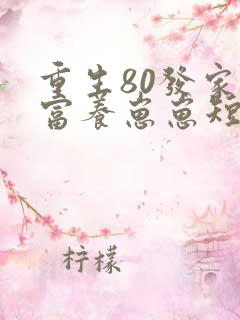 重生80發家
富養崽崽短
柠檬